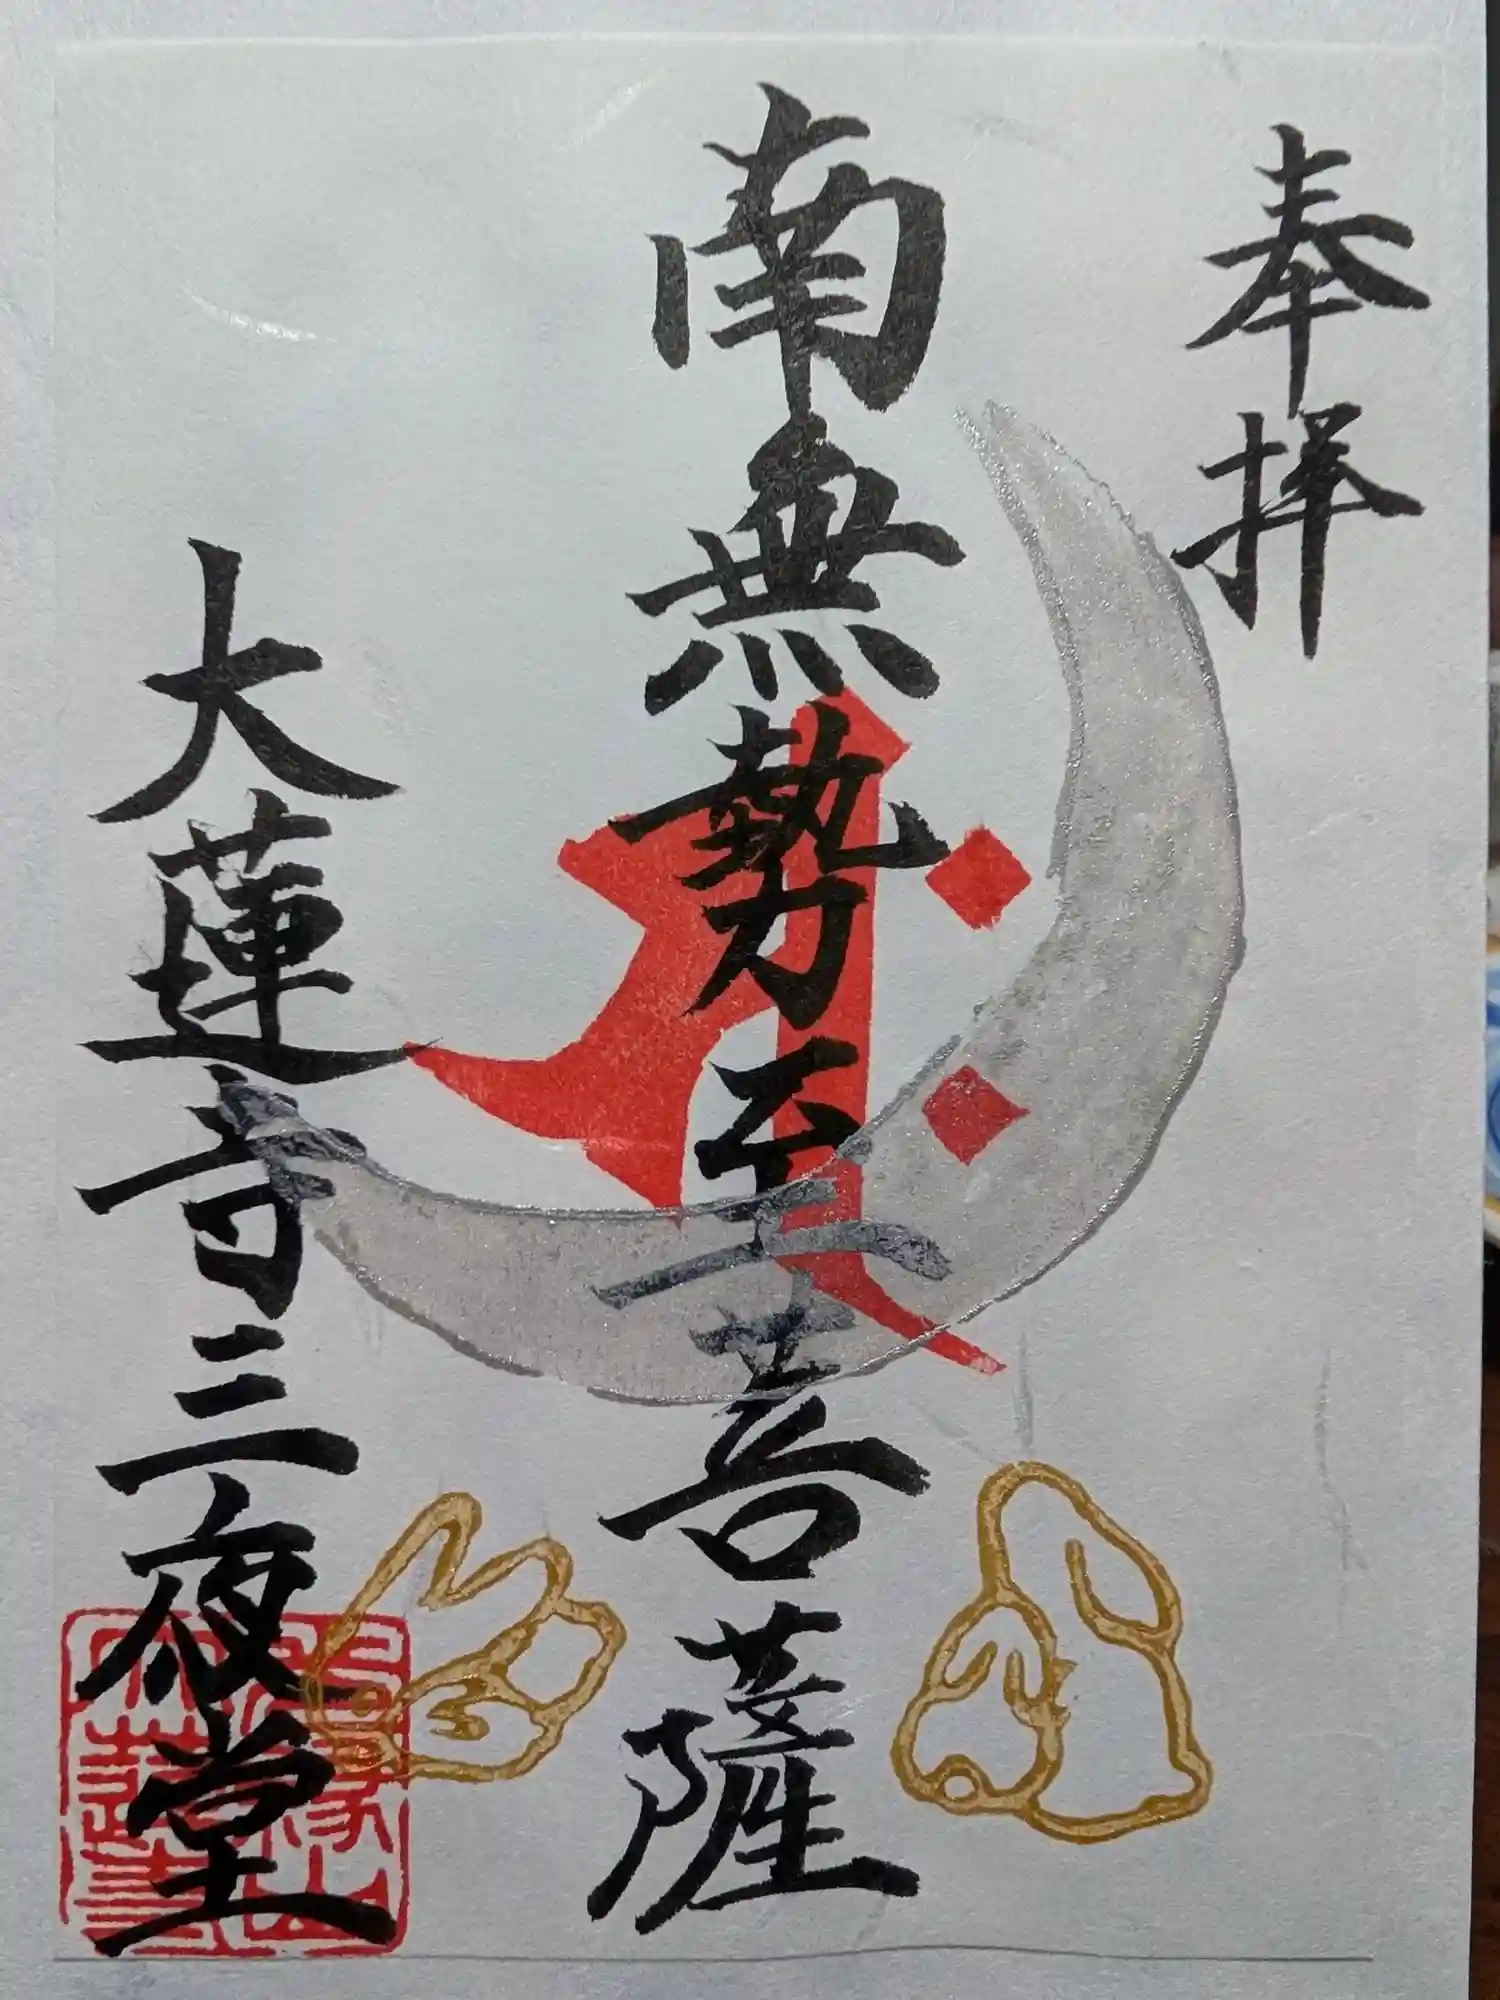 奉拝
南無勢至菩薩
大蓮寺三夜堂